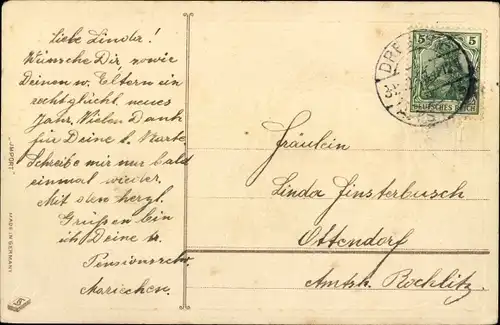 Liebe Linda!
Wünsche Dir, sowie
Deinen w. Eltern ein
recht glückl. neues
Jahr. Vielen Dank
für Deine l. Karte.
Schreibe mir nur bald
einmal wieder.
Mit den herzl.
Grüßen bin
ich Deine
Pensionsschw.
Mariechen.
Fräulein
Linda Finsterbusch
Ottendorf
Amtsh. Rochlitz.
5 5
DEUTSCHES REICH
DRE
"IMPORT"
MADE IN GERMANY